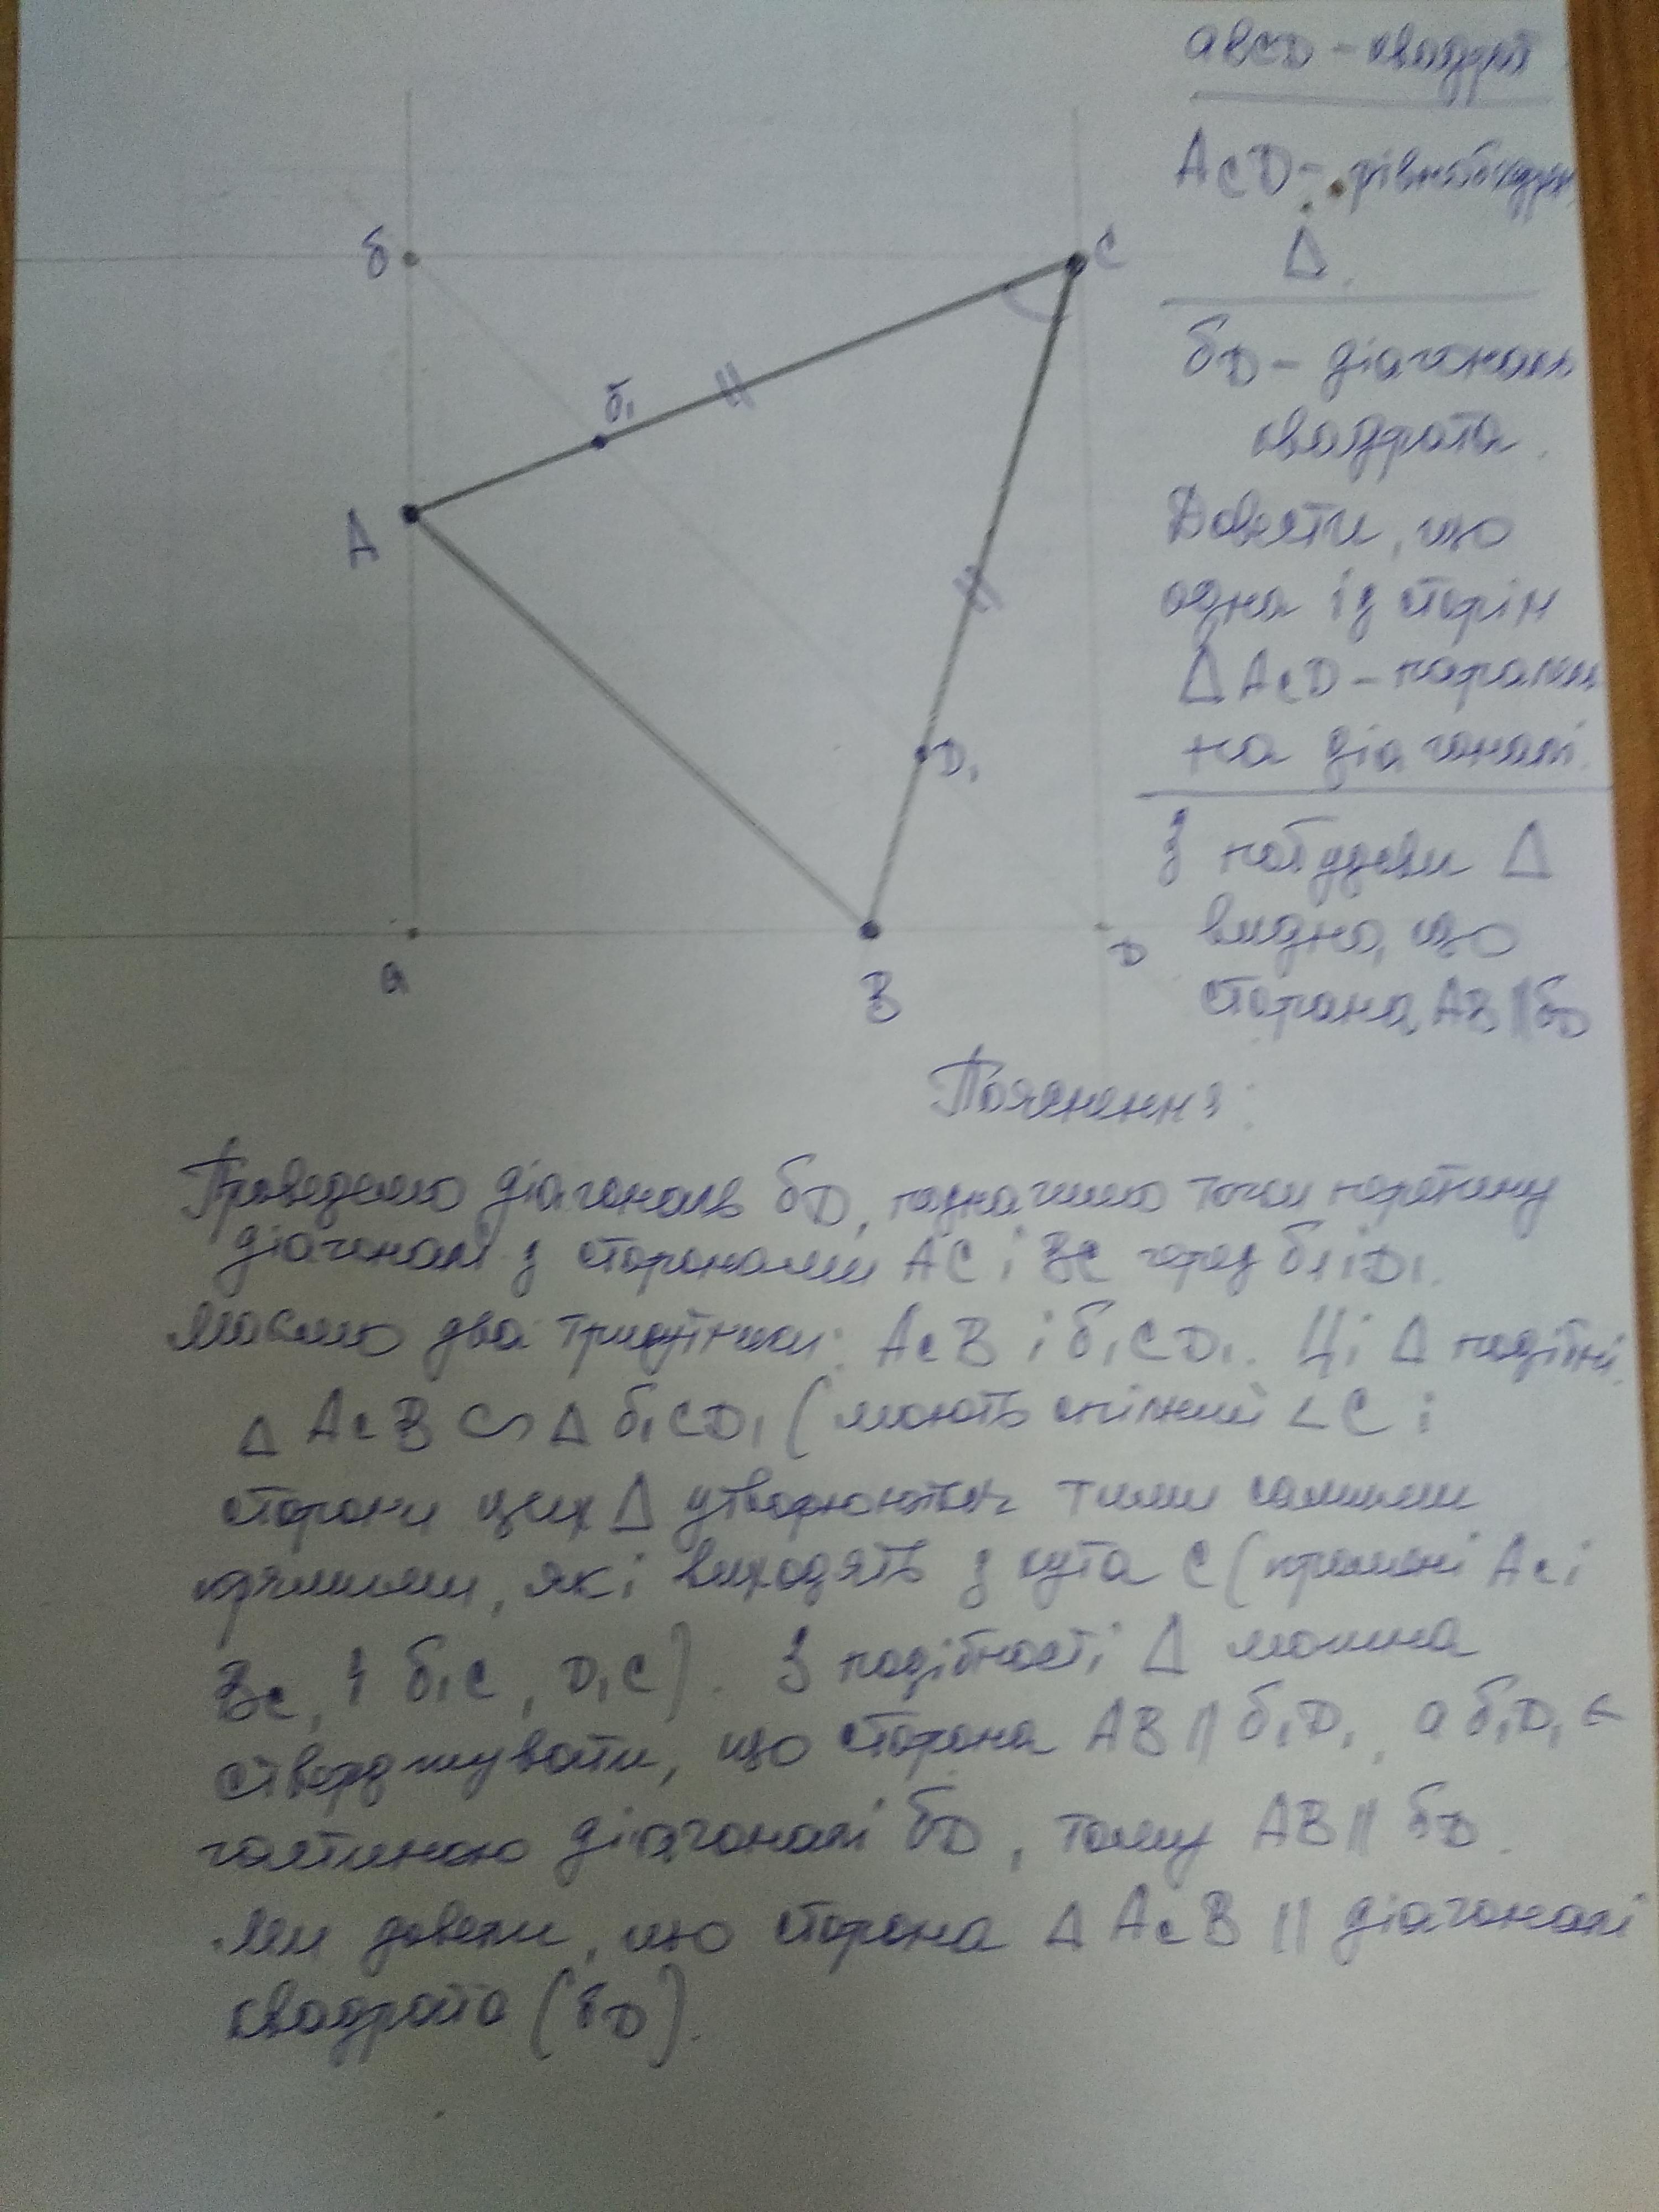 авсD - квадрат
АсD - рівнобедрен.
Δ.
бD - діагональ
квадрата.
Довести, що
одна із сторін
Δ АсD - паралель
на діагоналі.
З побудови Δ
видно, що
сторона АВ || бD
б
С
б₁
А
D₁
а
В
D
Пояснення:
Проведемо діагональ бD, позначимо точки перетину
діагоналі з сторонами АС і Вс через б₁ і D₁.
Маємо два трикутники: АсВ і б₁СD₁. Ці Δ подібні.
Δ АсВ ∽ Δ б₁СD₁ (мають спільний ∠С і
сторони цих Δ утворюються тими самими
прямими, які виходять з кута С (промені Ас і
Вс, і б₁с, D₁С). З подібності Δ можна
стверджувати, що сторона АВ || б₁D₁, а б₁D₁ є
частиною діагоналі бD, тому АВ || бD.
Ми довели, що сторона Δ АсВ || діагоналі
квадрата (бD).